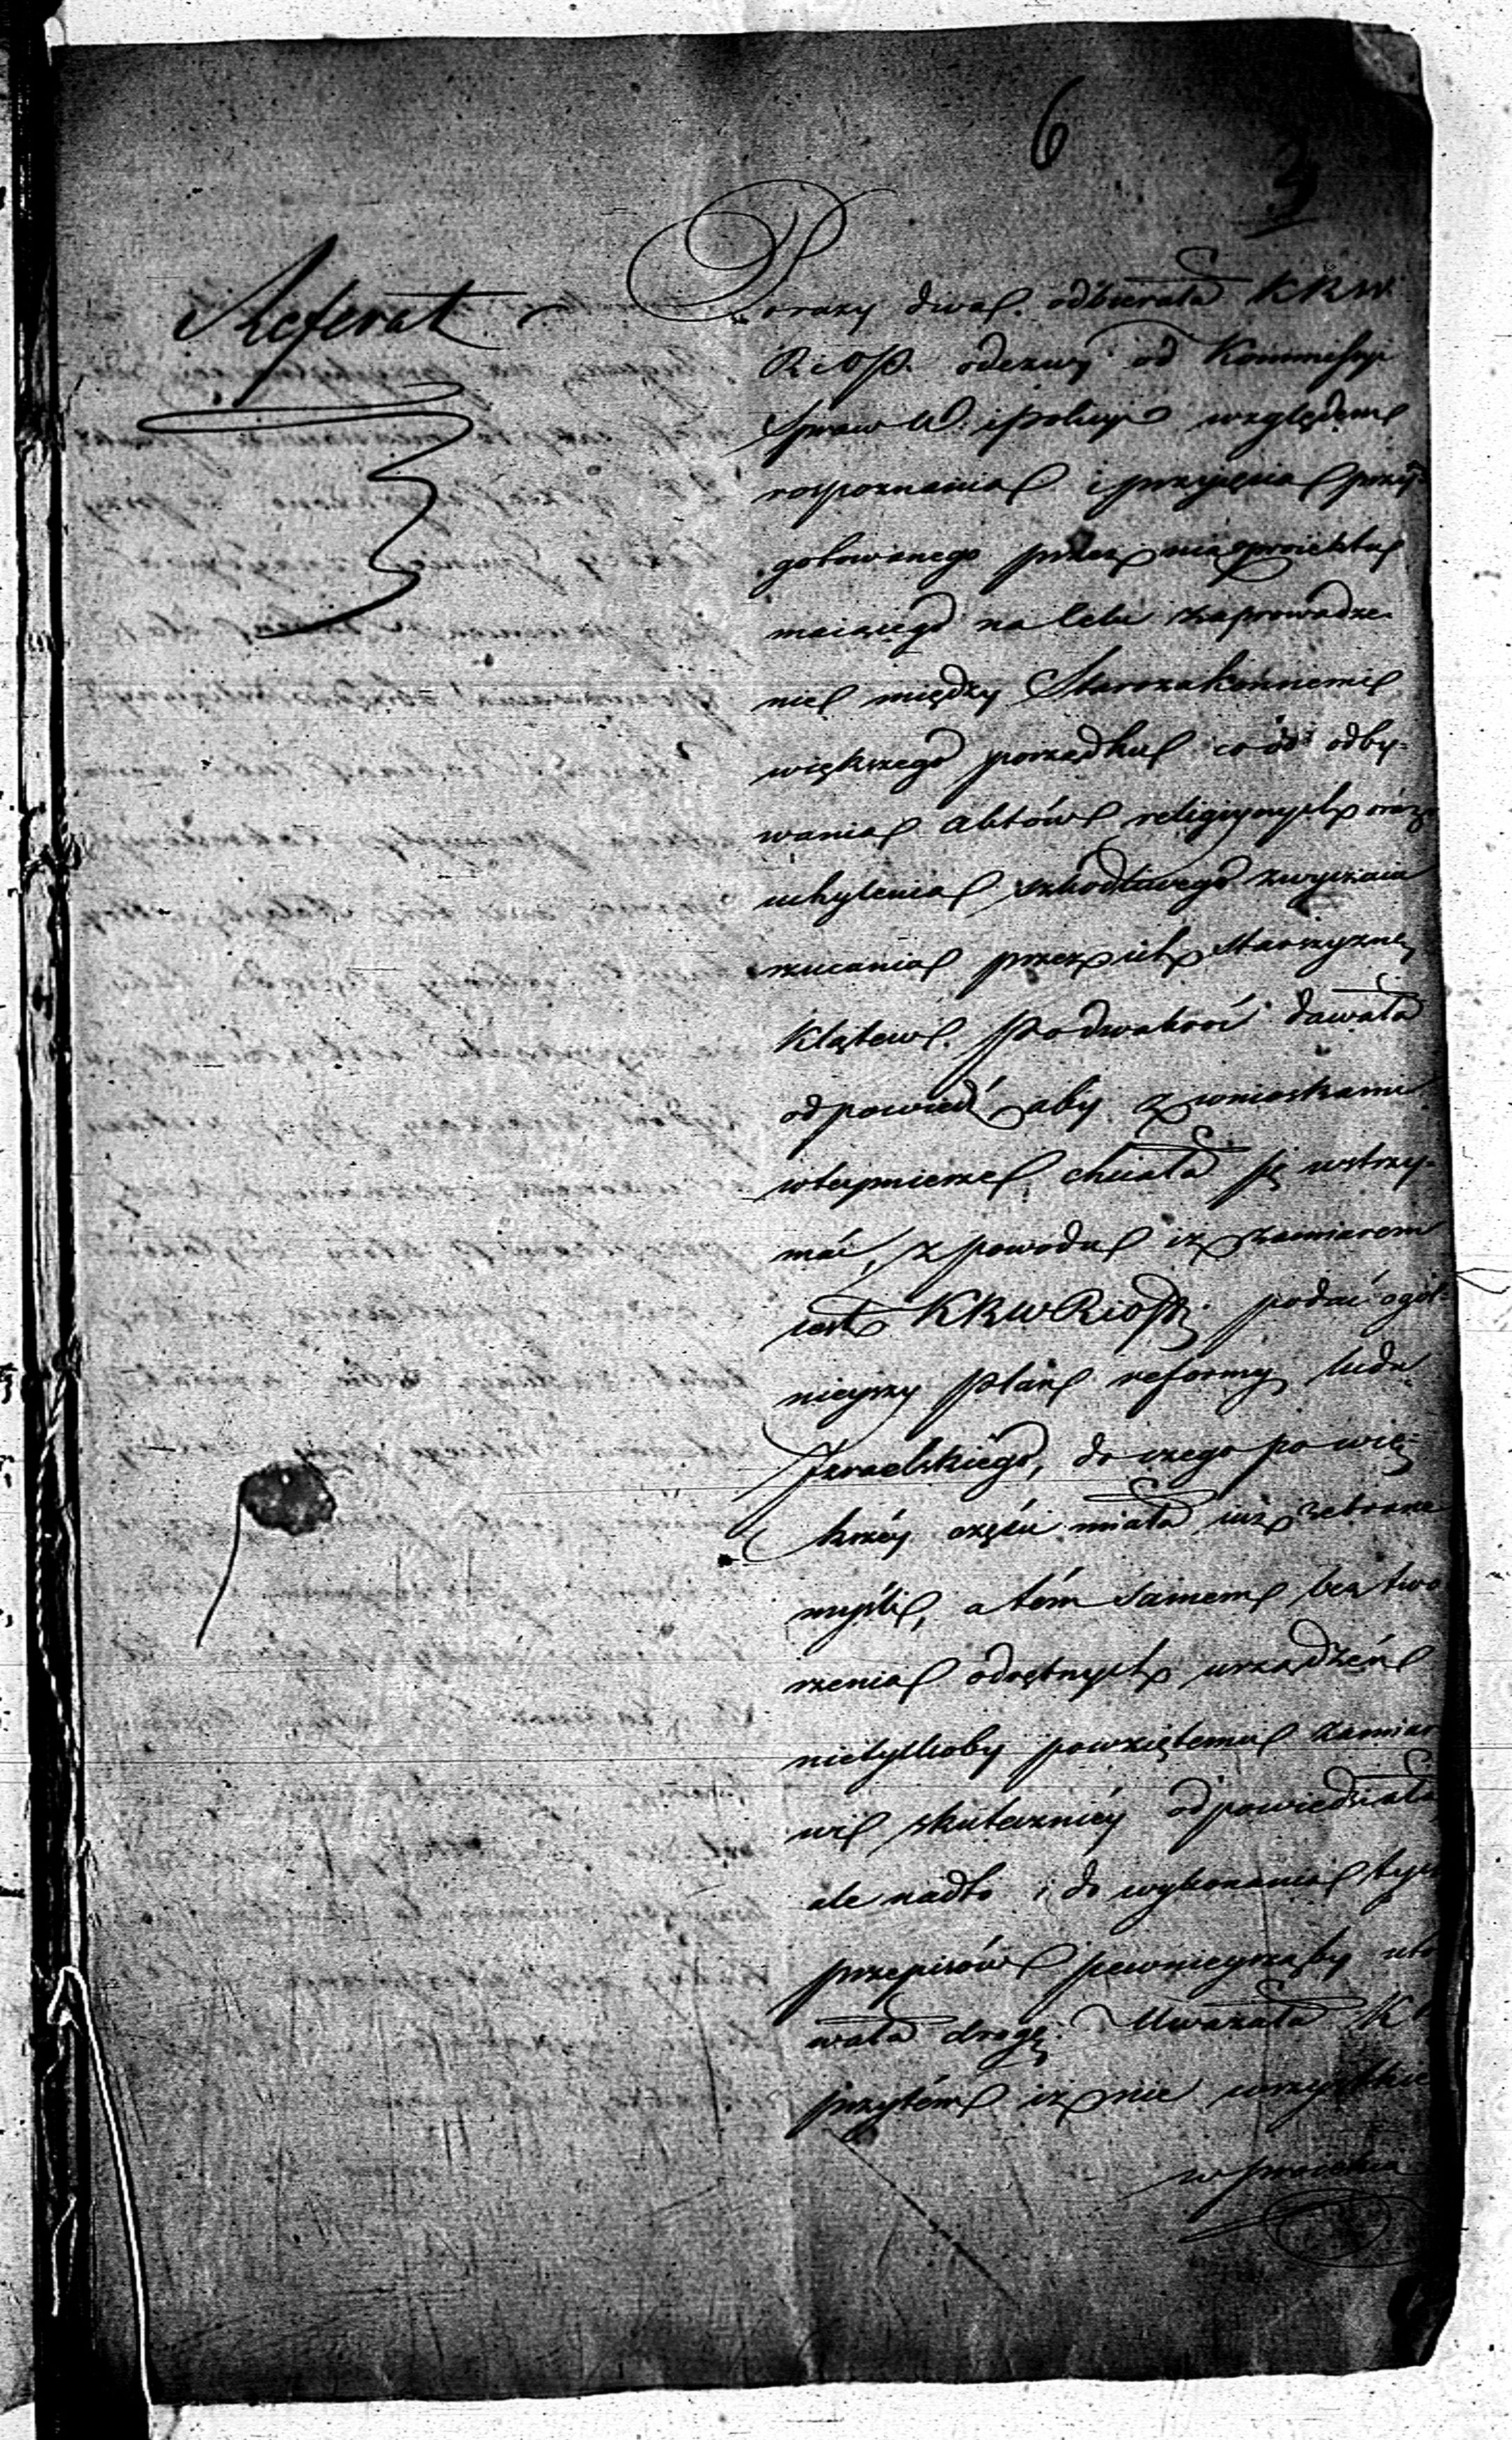 6
2
Referat
Porazy dwa odbierała KRW.
R i O P. odezwy od Kommissyi
Spraw W. i Policyi względem
rozpoznania i przyjęcia przy-
gotowanego przez nią proiektu
maiącego na celu zaprowadze-
nie między Starozakonnemi
większego porządku co do odby-
wania aktów religiynych oraz
uchylenia szkodliwego zwyczaiu
rzucania przez ich Starszyznę
Klątew. Podwakroć dawała
odpowiedź aby z wnioskami
w tey mierze chciała się wstrzy-
mać, z powodu iż zamiarem
iest KRWRiOP. podać ogól-
nieyszy plan reformy ludu
Izraelskiego, do czego po wię-
kszéy części miała iuż zebrane
myśli, a tém samem bez two
rzenia odrębnych urządzeń
nietylkoby powziętemu zamiar
wi skuteczniéy odpowiedziała
ale nadto i do wykonania tych
przepisów pewnieysząby uto
wała drogę. Uważała K
przytém iż nie wszystkie
w proiekcie